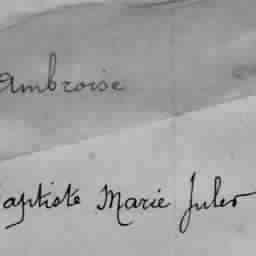 Ambroise
Baptiste Marie Jules